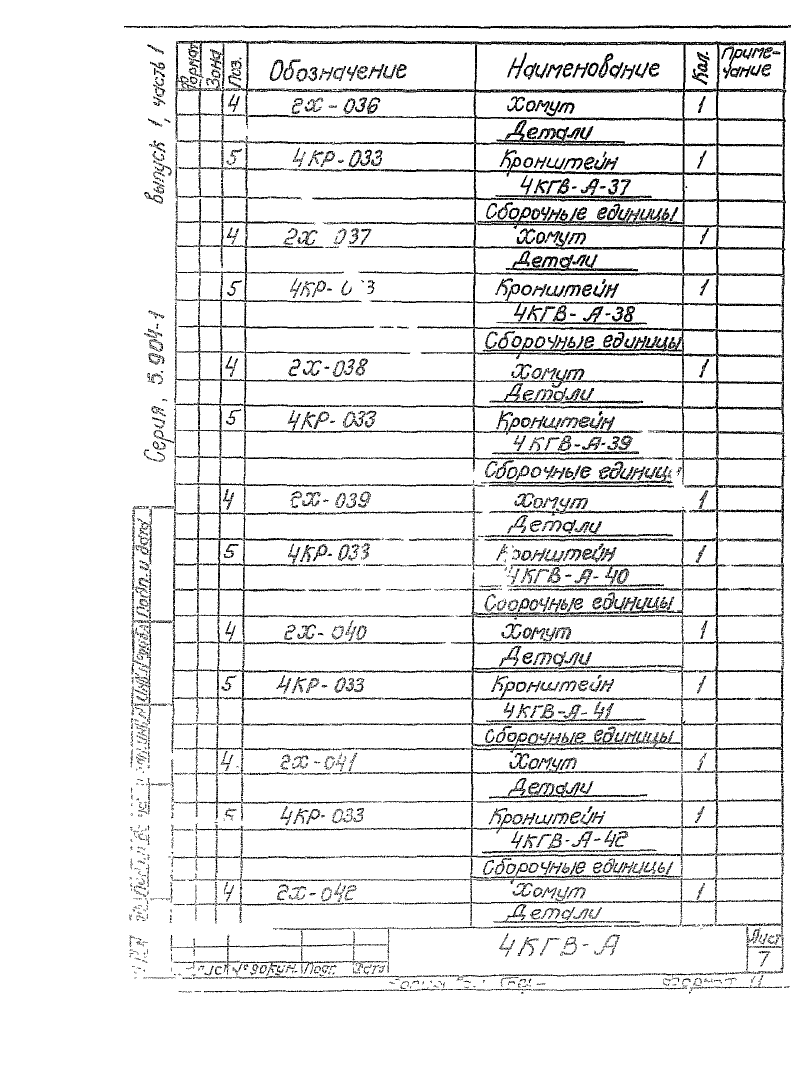 выпуск 1, часть 1
Серия, 5.904-1
Формат Зона Поз. Обозначение Наименование Кол. Приме-
чание
4 2Х-036 Хомут 1
Детали
5 4КР-033 Кронштейн 1
4КГВ-А-37
Сборочные единицы
4 2Х 037 Хомут 1
Детали
5 4КР- Кронштейн 1
4КГВ-А-38
Сборочные единицы
4 2Х-038 Хомут 1
Детали
5 4КР-033 Кронштейн
4КГВ-А-39
Сборочные
4 2Х-039 Хомут 1
Детали
5 4КР-033 Кронштейн 1
4КГВ-А-40
Сборочные единицы
4 2Х-040 Хомут 1
Детали
5 4КР-033 Кронштейн 1
4КГВ-А-41
Сборочные единицы
4 2Х-041 Хомут 1
Детали
5 4КР-033 Кронштейн 1
4КГВ-А-42
Сборочные единицы
4 2Х-042 Хомут 1
Детали
Подп. и дата
4КГВ-А
Лист
7
Лист № докум. Подп. Дата
Формат 11